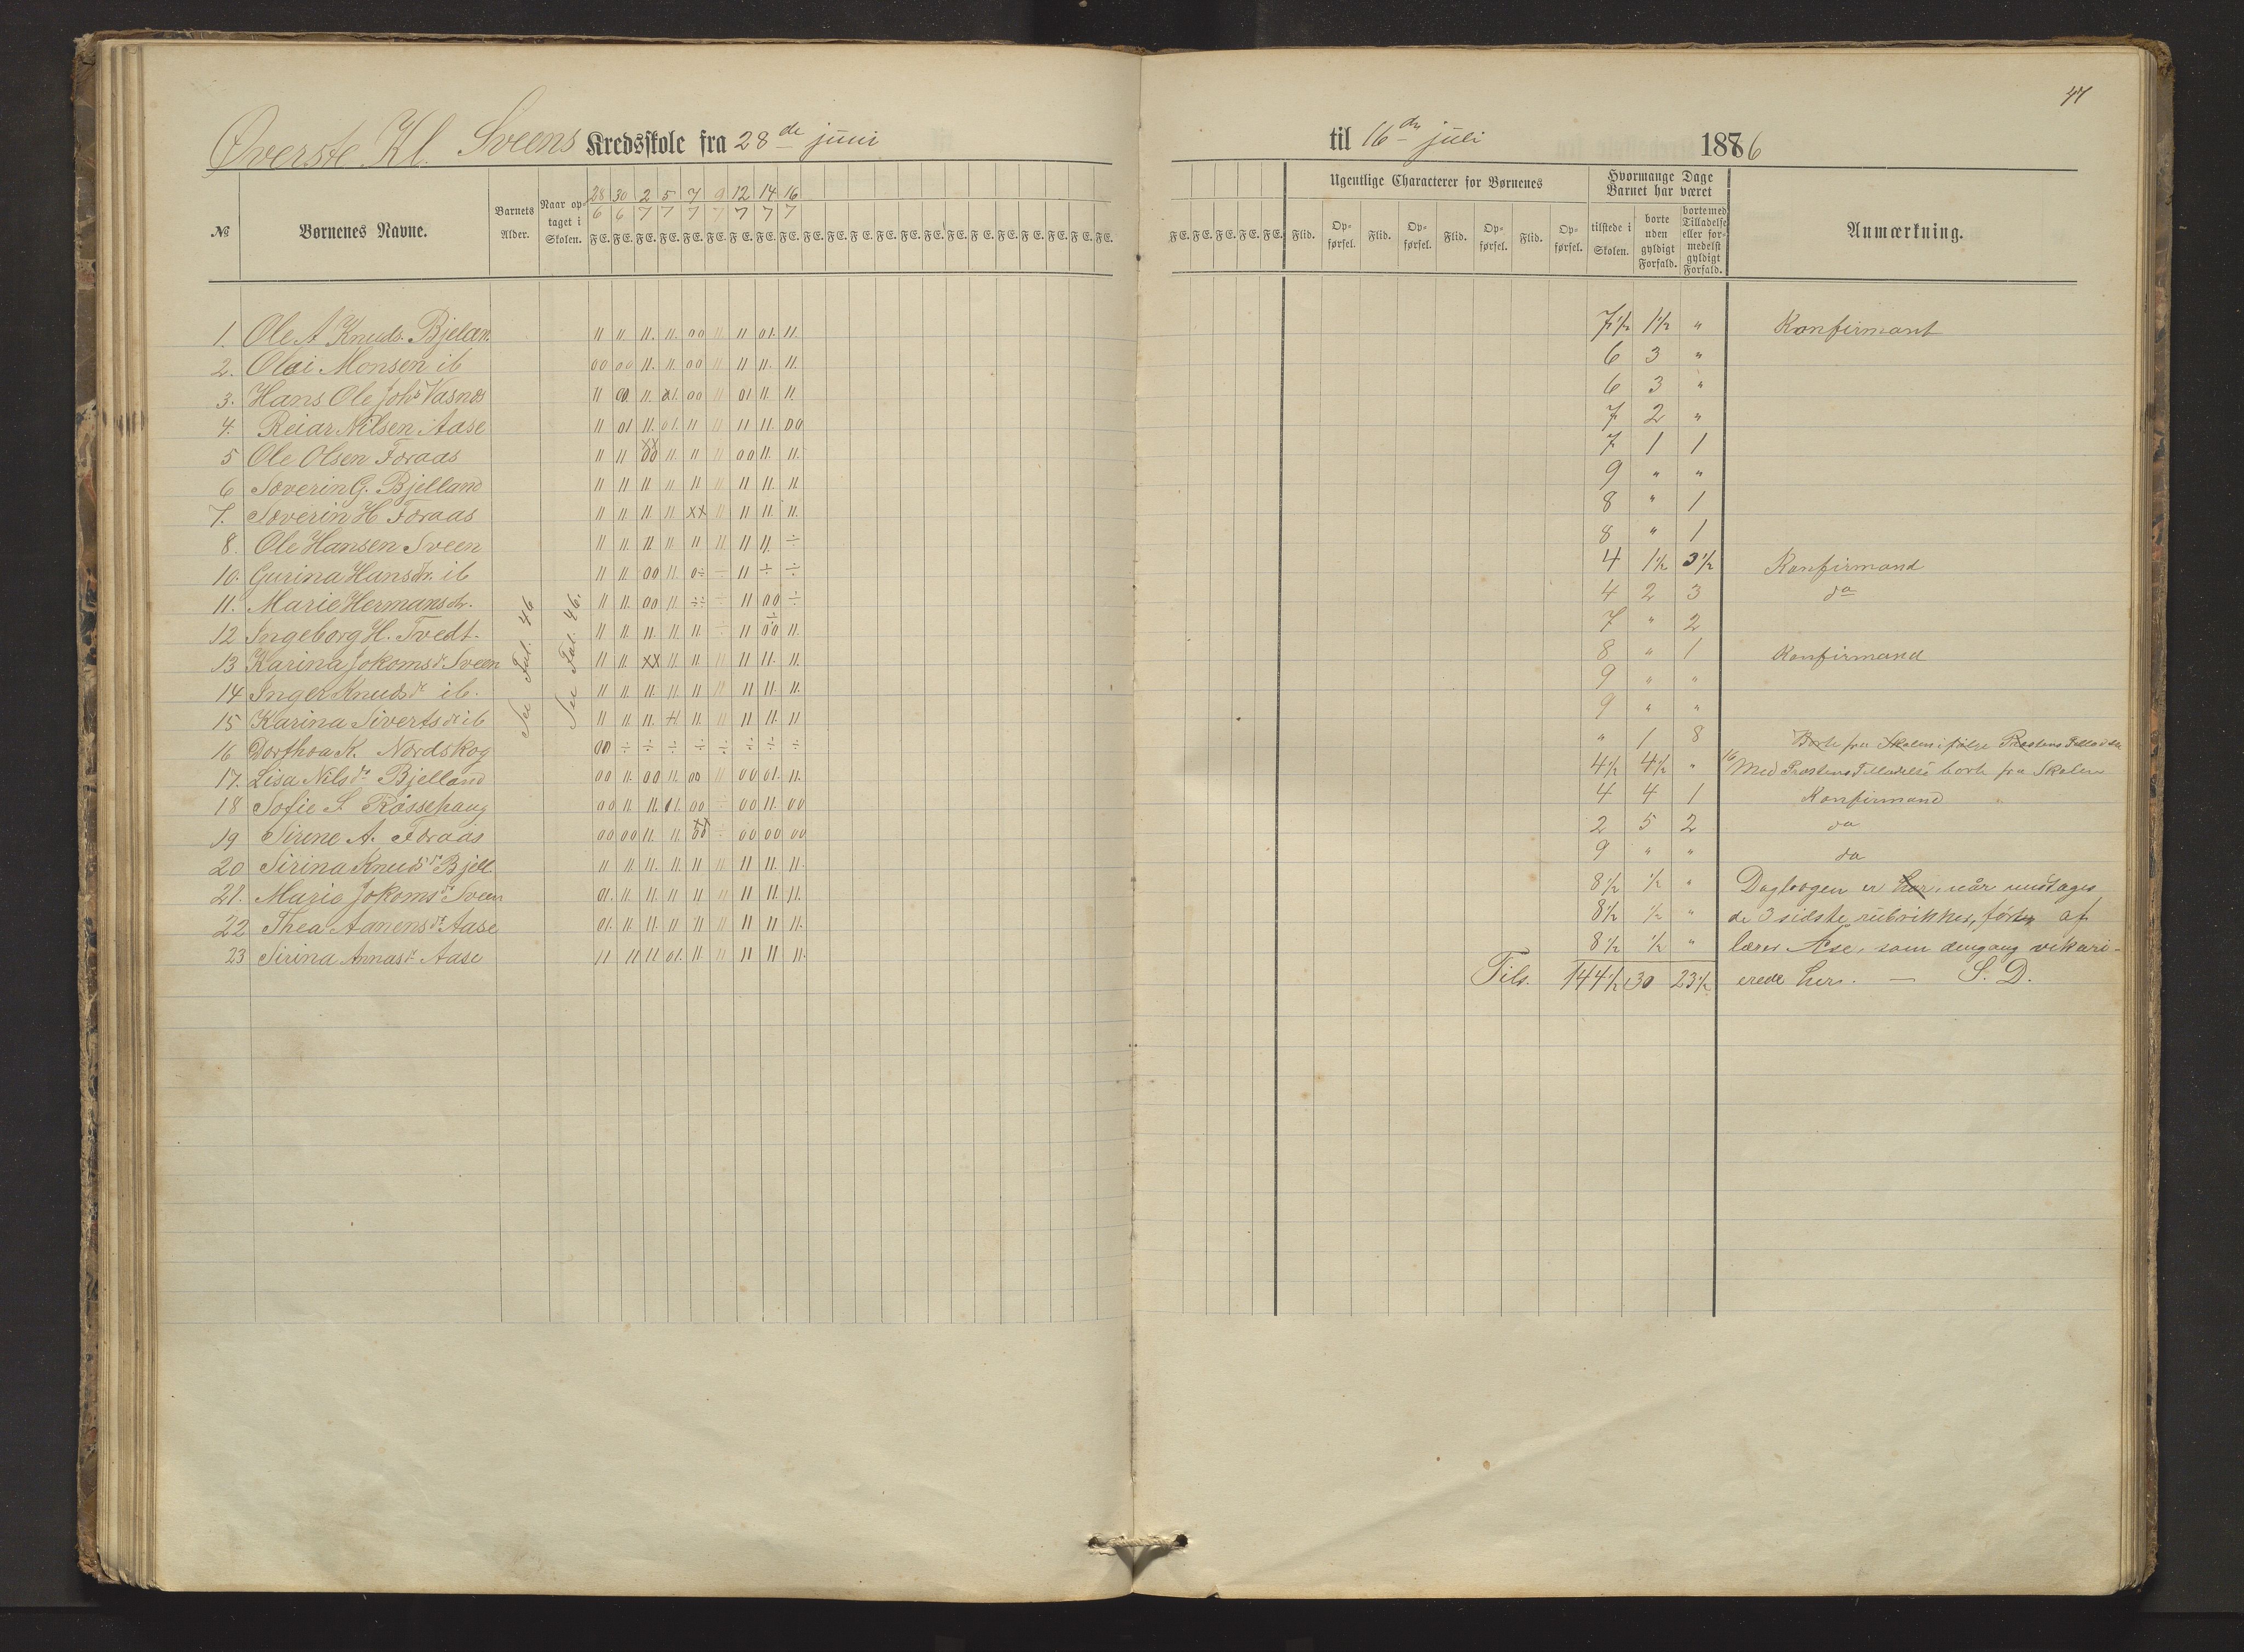 47
Øverste Kl. Sveens Kredsskole fra 28de juni til 16de juli 1886
№ Børnenes Navne. Barnets Alder. Naar optaget i Skolen. Ugentlige Characterer for Børnenes Hvormange Dage Barnet har været Anmærkning.
28 30 2 5 7 9 12 14 16
6 6 7 7 7 7 7 7 7
F E. F E. F E. F E. F E. F E. F E. F E. F E. F E. F E. F E. F E. F E. F E. F E. F E. F E. F E. F E. F E. F E. F E. F E. F E. F E. F E.
Flid. Opførsel. Flid. Opførsel. Flid. Opførsel. Flid. Opførsel. tilstede i Skolen. borte uden gyldigt Forfald. borte med Tilladelse eller formedelst gyldigt Forfald.
See Fol. 46 See Fol. 46.
1. Ole A Knuds. Bjelan. 11 11. 11. 11. 00 11 11 01. 11. 7½ 1½ " Konfirmant
2. Olai Monsen ib 00 00 11. 11. 00 11 11 11. 11. 6 3 "
3. Hans Ole Johs Vasnes 11 00. 11. 01. 00 11 01 11. 11. 6 3 "
4. Reiar Nilsen Aase 11 01 11. 01. 11 11 11 11. 00 7 2 "
5 Ole Olsen Foraas 11 11 xx 00 11. 11 11 00 11. 11. 7 1 1
6 Soverin G. Bjelland 11 11 11 11 11 11 11 11. 11 9 " "
7. Soverin H Foraas 11 11 11. 11 xx 11 11 11. 11. 8 " 1
8. Ole Hansen Sveen 11 11. 11. 11. 11 11. 11 11. ÷ 8 " 1
10. Gurina Hansdr. ib 11 11. 00 11. 0÷ ÷ 11 ÷ ÷ 4 1½ 3½ Konfirmand
11. Marie Hermansdr. 11 11. 00 11 ÷÷ ÷ 11 00 ÷ 4 2 3 do
12 Ingeborg H. Tvedt. 11 11. 11. 11. 11. ÷ 11 ÷ 00 11. 7 " 2
13 Karina Jokomsdr Sveen 11 11 xx 11 11 11 11 11. 11. 8 " 1 Konfirmand
14 Inger Knudsdr ib. 11 11. 11. 11. 11 11 11 11. 11. 9 " "
15 Karina Sivertsdr ib 11 11 11. 11 11. 11 11 11. 11 9 " "
16 Dorthea K. Nordskog 00 ÷ ÷ ÷ ÷ ÷ ÷ ÷ ÷ " 1 8 Borte fra Skolen ifølge Præstens Tilladelse
17. Lisa Nilsdr Bjelland 00 11. 00 11. 00 11 00 01. 11. 4½ 4½ " 16 Med Præstens Tilladelse borte fra Skolen
18 Sofie S. Røssehaug 00 11. 11. 01. 00 ÷ 00 11. 00 4 4 1 Konfirmand
19 Sirine A. Foraas 00 00 11. 11. xx 00 ÷ 00 00 00 2 5 2 do
20 Sirina Knudsdr Bjell 11 11. 11. 11. 11 11 11 11. 11. 9 " " do
21. Marie Jokomsdr Sveen 01. 11. 11. 11. 11 11 11 11. 11. 8½ ½ " Dagbogen er her, når undtages
22 Thea Aanensdr Aase 01. 11. 11. 11 11 11 11 11 11. 8½ ½ " de 3 sidste rubrikker, ført af
23 Sirina Annasdr Aase 11 11 11 01. 11 11 11 11 11. 8½ ½ " lærer Åse, som dengang vikari-
Tils. 144½ 30 23½ erede her. — S. D.